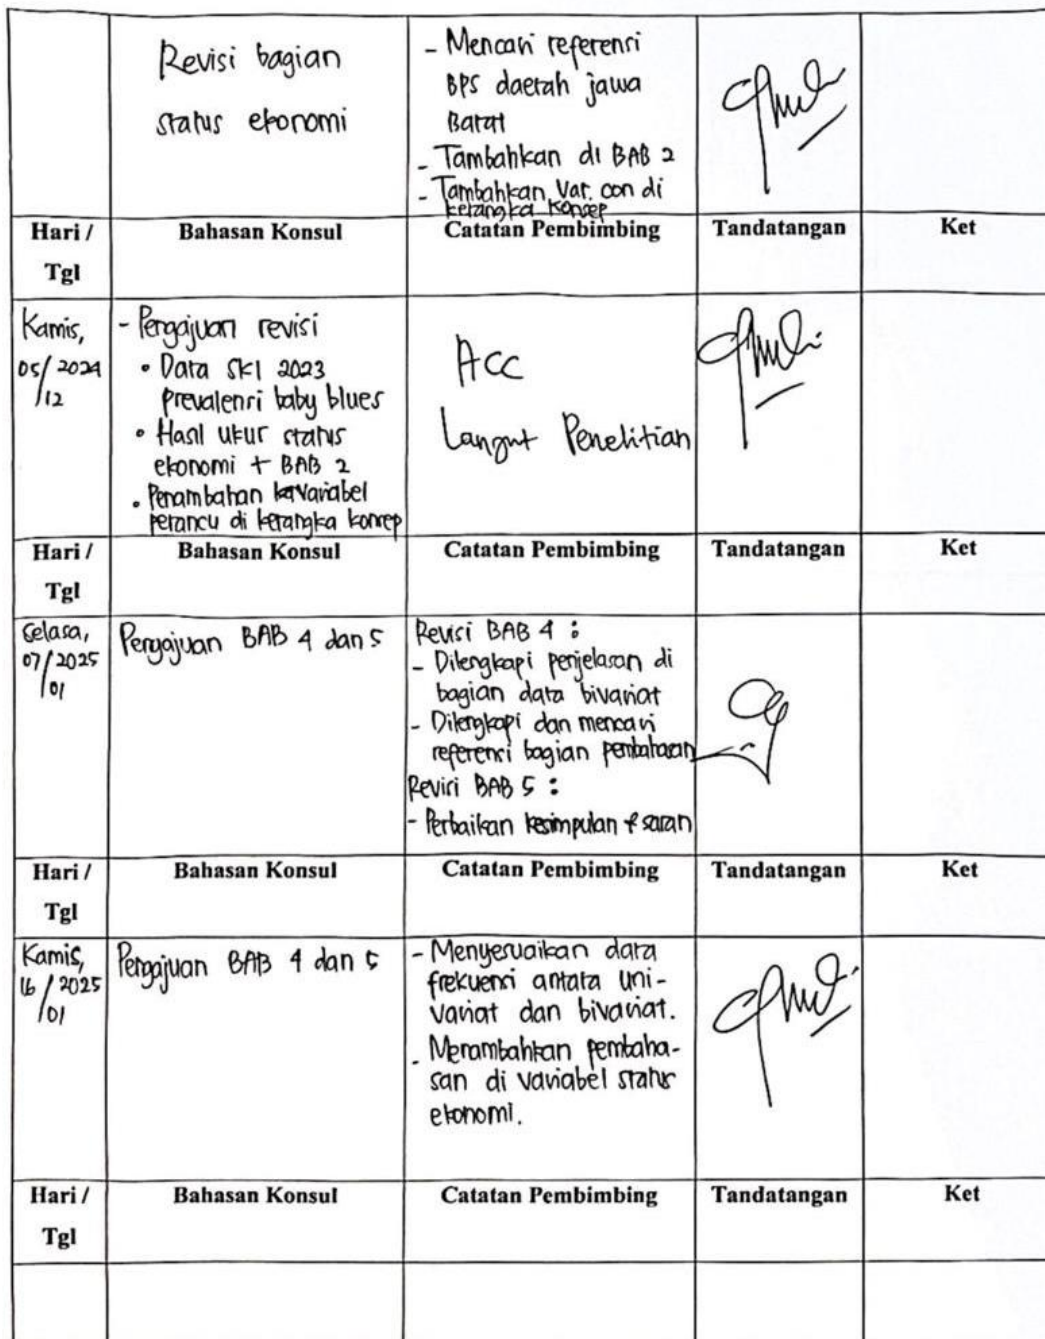 Revisi bagian
status ekonomi
- Mencari referensi
BPS daerah jawa
Barat
- Tambahkan di BAB 2
- Tambahkan Var. con di
kerangka konsep
Hari / Bahasan Konsul Catatan Pembimbing Tandatangan Ket
Tgl
Kamis,
05/2024
/12
- Pengajuan revisi
• Data SKI 2023
prevalensi baby blues
• Hasil ukur status
ekonomi + BAB 2
• Penambahan variabel
perancu di kerangka konsep
ACC
Langut Penelitian
Hari / Bahasan Konsul Catatan Pembimbing Tandatangan Ket
Tgl
Selasa,
07/2025
/01
Pengajuan BAB 4 dan 5
Revisi BAB 4 :
- Dilengkapi penjelasan di
bagian data bivariat
- Dilengkapi dan mencari
referensi bagian pembahasan
Revisi BAB 5 :
- Perbaikan kesimpulan & saran
Hari / Bahasan Konsul Catatan Pembimbing Tandatangan Ket
Tgl
Kamis,
16/2025
/01
Pengajuan BAB 4 dan 5
- Menyesuaikan data
frekuensi antara uni-
variat dan bivariat.
- Menambahkan pembaha-
san di variabel status
ekonomi.
Hari / Bahasan Konsul Catatan Pembimbing Tandatangan Ket
Tgl